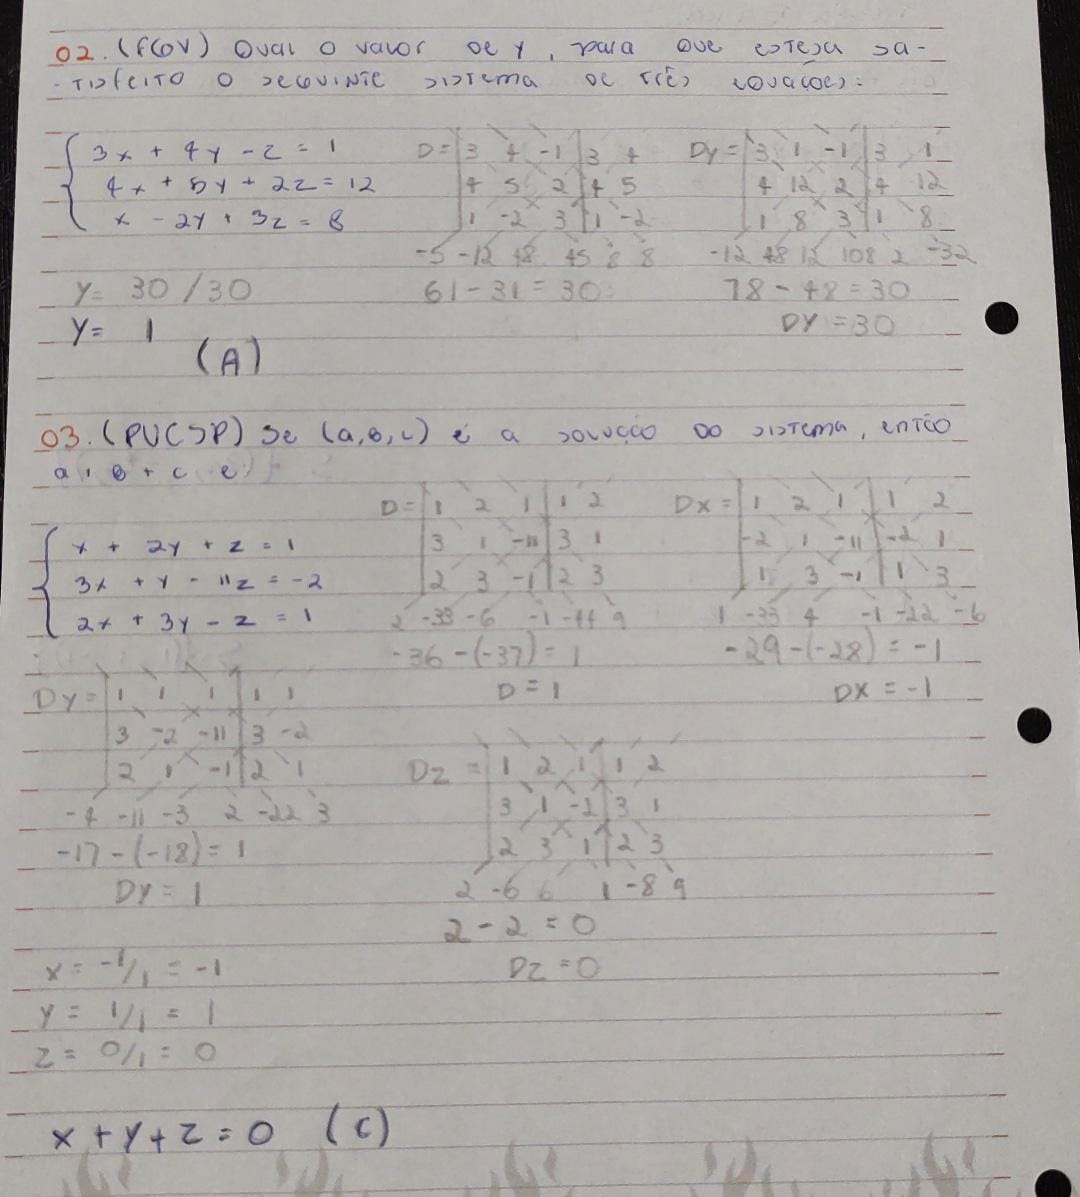 02. (FGV) Qual o valor de y, para que esteja sa-
tisfeito o seguinte sistema de três equações:
3x + 4y - z = 1
4x + 5y + 2z = 12
x - 2y + 3z = 8
D= 3 4 -1 3 4
4 5 2 4 5
1 -2 3 1 -2
-5 -12 48 45 8 8
61 - 31 = 30
Dy= 3 1 -1 3 1
4 12 2 4 12
1 8 3 1 8
-12 48 12 108 2 -32
78 - 48 = 30
DY = 30
y= 30 / 30
y= 1
(A)
03. (PUCSP) Se (a,b,c) é a solução do sistema, então
a + b + c é:
x + 2y + z = 1
3x + y - 11z = -2
2x + 3y - z = 1
D= 1 2 1 1 2
3 1 -11 3 1
2 3 -1 2 3
2 -33 -6 -1 -44 9
-36 - (-37) = 1
D = 1
Dx = 1 2 1 1 2
-2 1 -11 -2 1
1 3 -1 1 3
1 -33 4 -1 -22 -6
-29 - (-28) = -1
DX = -1
Dy= 1 1 1 1 1
3 -2 -11 3 -2
2 1 -1 2 1
-4 -11 -3 2 -22 3
-17 - (-18) = 1
DY = 1
Dz = 1 2 1 1 2
3 1 -2 3 1
2 3 1 2 3
2 -6 6 1 -8 9
2 - 2 = 0
DZ = 0
x = -1/1 = -1
y = 1/1 = 1
z = 0/1 = 0
x + y + z = 0 (C)